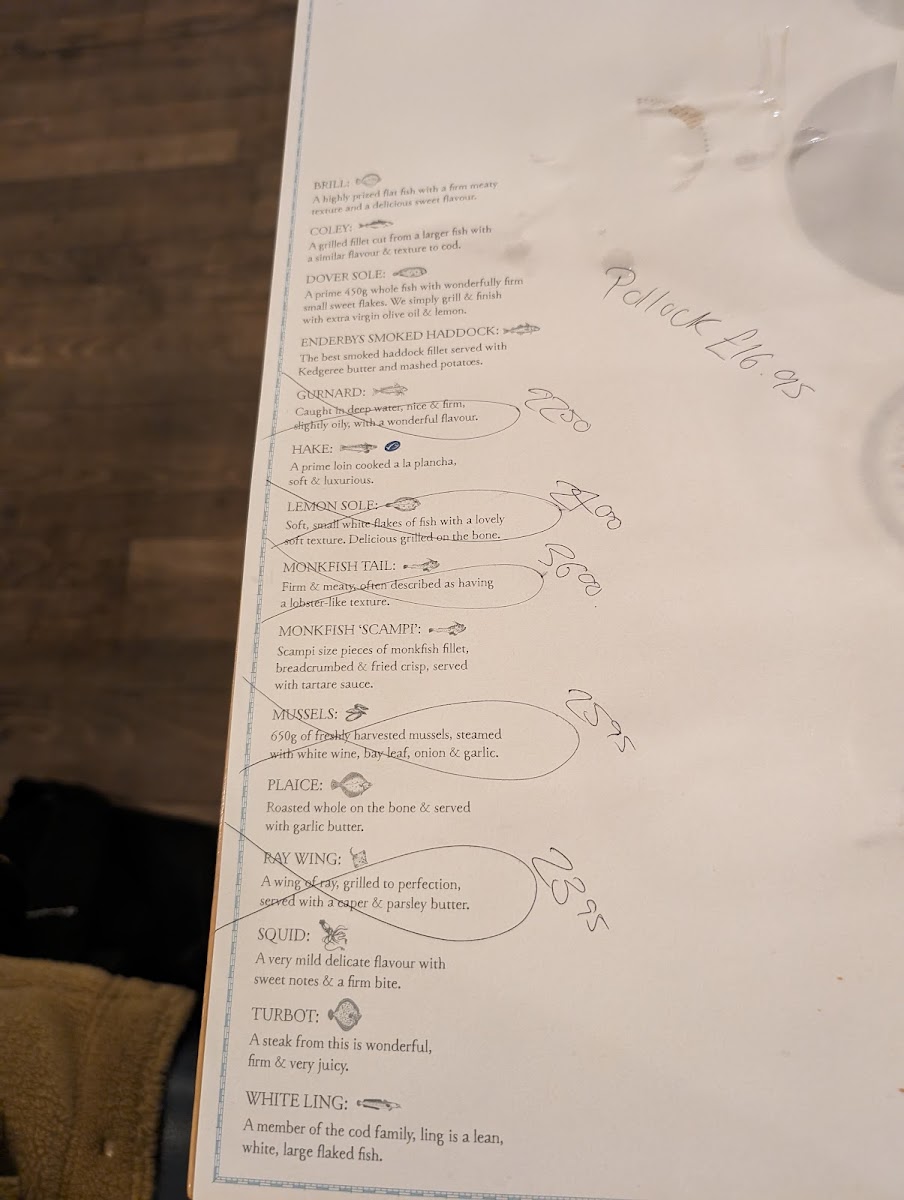 BRILL:
A highly prized flat fish with a firm meaty
texture and a delicious sweet flavour.
COLEY:
A grilled fillet cut from a larger fish with
a similar flavour & texture to cod.
DOVER SOLE:
A prime 450g whole fish with wonderfully firm
small sweet flakes. We simply grill & finish
with extra virgin olive oil & lemon.
ENDERBYS SMOKED HADDOCK:
The best smoked haddock fillet served with
Kedgeree butter and mashed potatoes.
GURNARD:
Caught in deep water, nice & firm,
slightly oily, with a wonderful flavour.
2250
HAKE:
A prime loin cooked a la plancha,
soft & luxurious.
LEMON SOLE:
Soft, small white flakes of fish with a lovely
soft texture. Delicious grilled on the bone.
MONKFISH TAIL:
Firm & meaty, often described as having
a lobster-like texture.
3600
MONKFISH 'SCAMPI':
Scampi size pieces of monkfish fillet,
breadcrumbed & fried crisp, served
with tartare sauce.
MUSSELS:
650g of freshly harvested mussels, steamed
with white wine, bay leaf, onion & garlic.
2595
PLAICE:
Roasted whole on the bone & served
with garlic butter.
RAY WING:
A wing of ray, grilled to perfection,
served with a caper & parsley butter.
2395
SQUID:
A very mild delicate flavour with
sweet notes & a firm bite.
TURBOT:
A steak from this is wonderful,
firm & very juicy.
WHITE LING:
A member of the cod family, ling is a lean,
white, large flaked fish.
Pollock £16.95